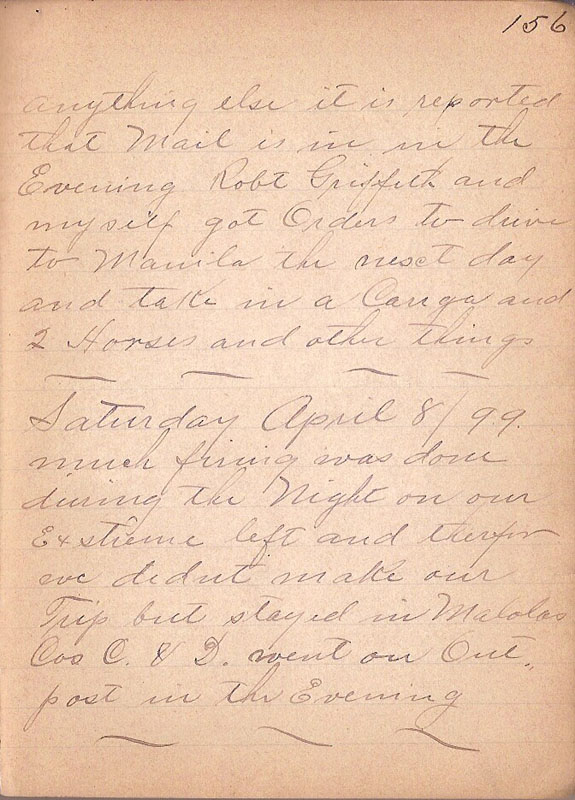 156
anything else it is reported
that Mail is in in the
Evening Robt Griffith and
myself got Orders to drive
to Manila the next day
and take in a Canga and
2 Horses and other things
Saturday April 8/99.
much firing was done
during the Night on our
Exstreme left and therfor
we didnt make our
Trip but stayed in Malolos
Cos C. & D. went on Out-
post in the Evening